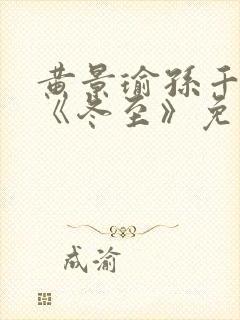 黄景瑜孙千
《冬至》免
成渝